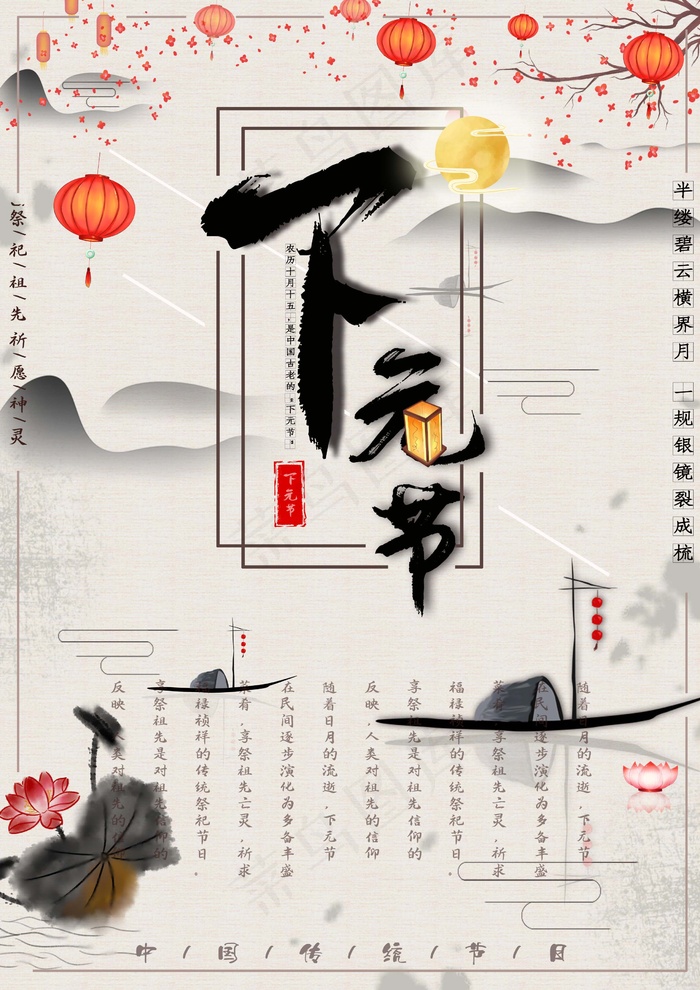 下元节
农历十月十五,是中国古老的“下元节”
下元节
祭/祀/祖/先 祈/愿/神/灵
半缕碧云横界月 一规银镜裂成梳
随着日月的流逝,下元节
在民间逐步演化为多备丰盛
菜肴,享祭祖先亡灵,祈求
福禄祯祥的传统祭祀节日.
享祭祖先是对祖先信仰的
反映,人类对祖先的信仰
随着日月的流逝,下元节
在民间逐步演化为多备丰盛
菜肴,享祭祖先亡灵,祈求
福禄祯祥的传统祭祀节日.
享祭祖先是对祖先信仰的
反映,人类对祖先的信
中/国/传/统/节/日